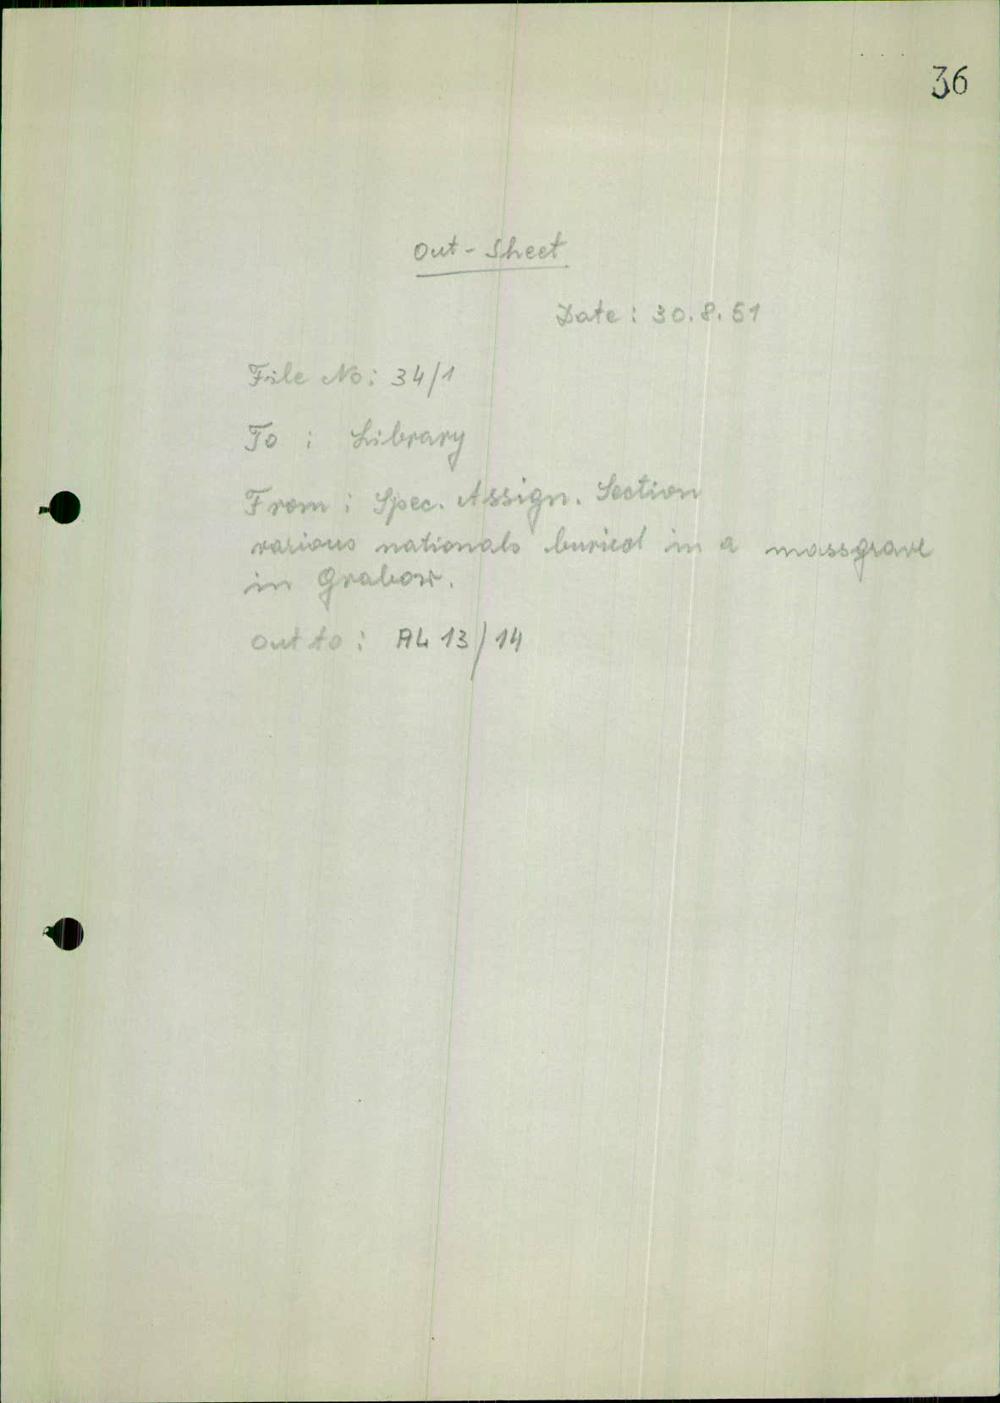 36
Out - Sheet
Date : 30.8.51
File No : 34/1
To : Library
From : Spec. Assign. Section
various nationals buried in a massgrave
in Grabow.
Out to : AL 13/14